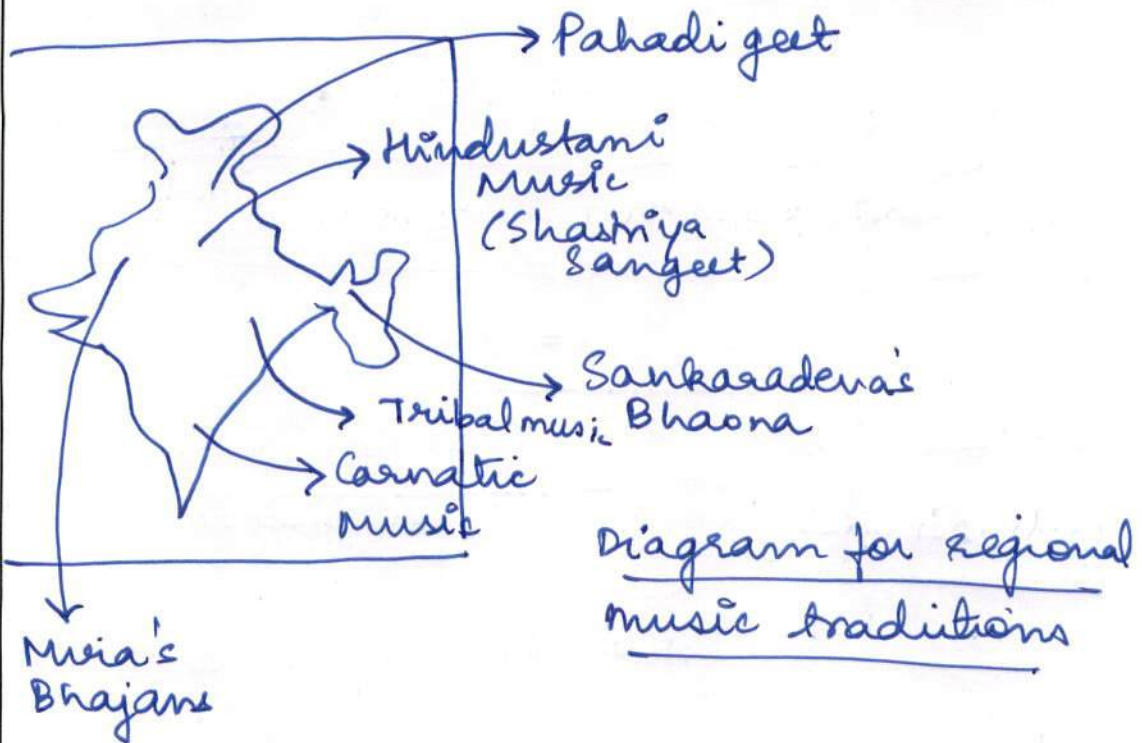 Pahadi geet
Hindustani
Music
(Shastriya
Sangeet)
Sankaradeva's
Bhaona
Tribal music
Carnatic
Music
Diagram for regional
music traditions
Mira's
Bhajans